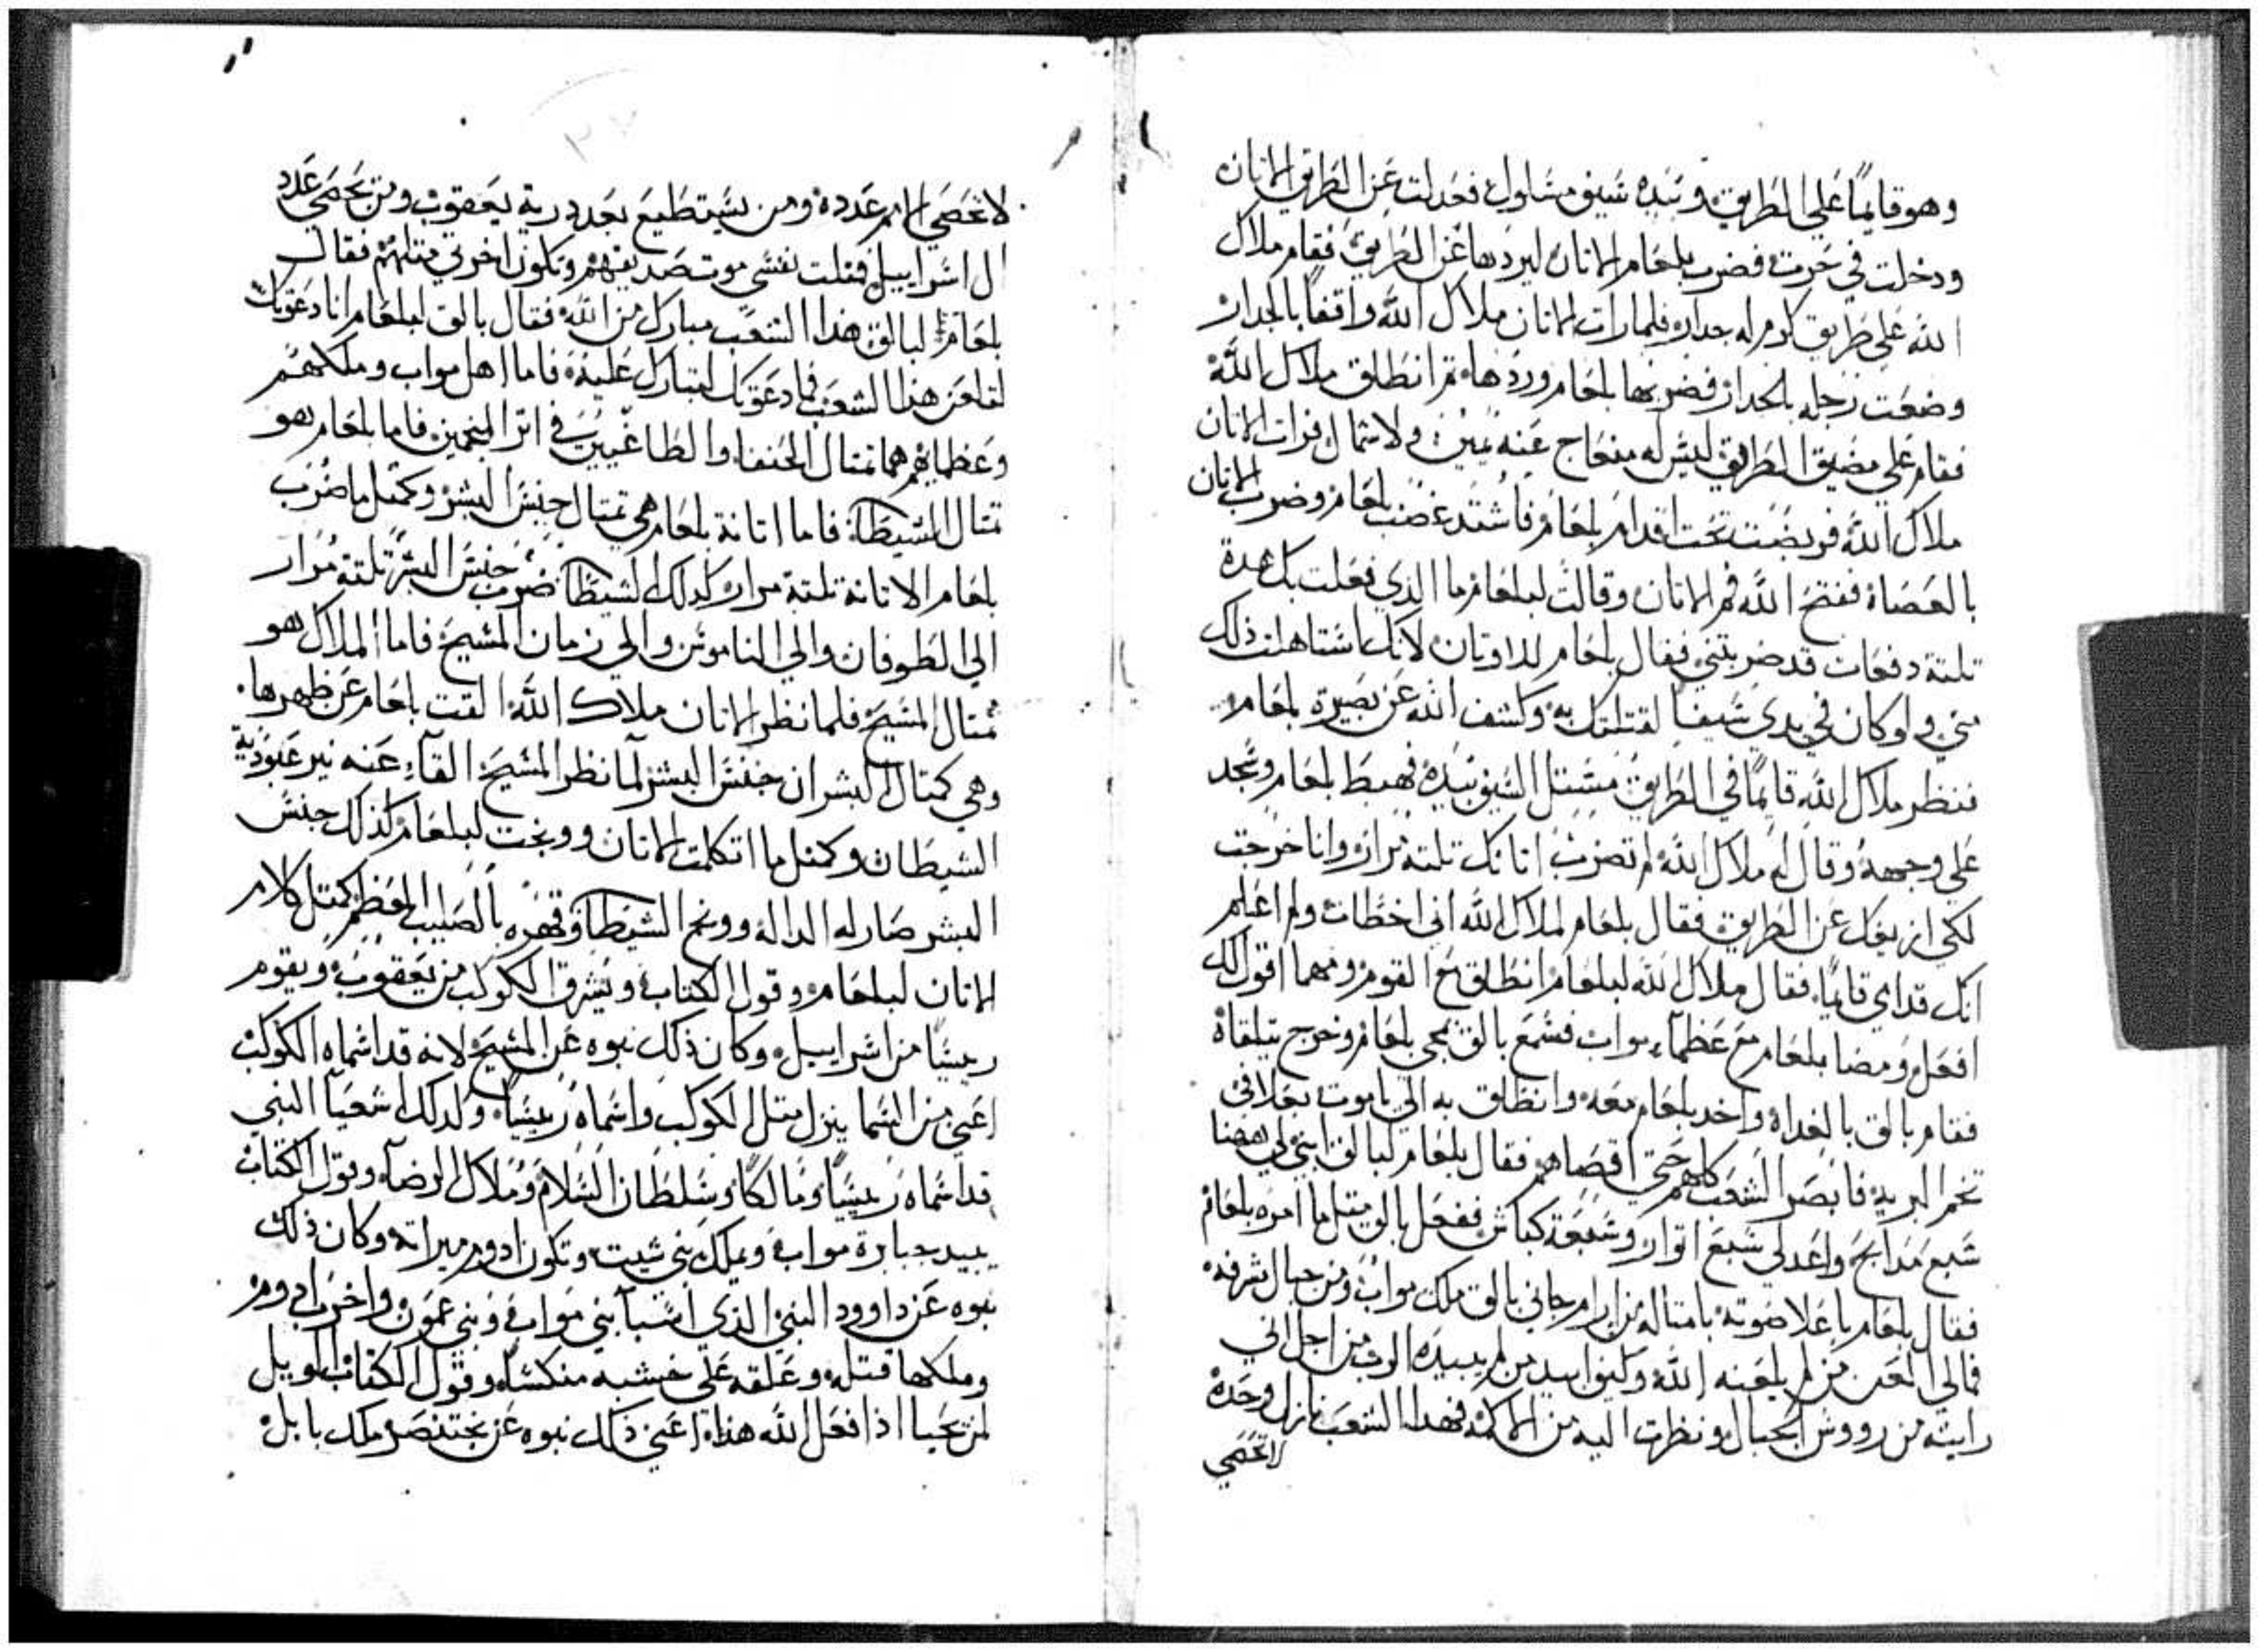 وهو قايمًا علي الطريق وبيده سيف مسلول فعدلت عن الطريق الاتان
ودخلت في حرت فضرب بلعام الاتان ليردها عن الطريق فقام ملاك
الله علي طريق كرم له جدار فلما رات الاتان ملاك الله واقفًا بالجدار
وضعت رجله بالجدار فضربها بلعام وردها تم انطلق ملاك الله
فقام علي مضيق الطريق ليس له منعاج عنه يمين ولا شمال فرات الاتان
ملاك الله فربضت تحت اقدام بلعام فاشتد غضب بلعام وضرب الاتان
بالعصاة ففتح الله فم الاتان وقالت لبلعام ما الذي فعلت بك هده
تلتة دفعات قد ضربتني فقال بلعام للاوتان لانك استاهلت ذلك
مني ولو كان في يدي سيفًا لقتلتك به وكشف الله عن بصيرة بلعام
فنظر ملاك الله قايمًا في الطريق مستل السيف بيده فهبط بلعام وسجد
علي وجهه وقال له ملاك الله لم تضرب اتانك تلتة مرار وانا خرجت
لكي ازيغك عن الطريق فقال بلعام لملاك الله اني اخطات ولم اعلم
انك قدامي قايمًا فقال ملاك الله لبلعام انطلق مع القوم ومهما اقول لك
افعل ومضا بلعام مع عظماء مواب فسمع بالق بمجي بلعام وخرج يتلقاه
فقام بالق بالغداه واخد بلعام معه وانطلق به الي باموت بعلا في
تخم البرية فابصر الشعب كلهم حتي اقصاهم فقال بلعام لبالق ابني لي ههنا
سبع مدابح واعد لي سبع اتوار وسبعة كباش ففعل بالق متل ما امره بلعام
فقال بلعام باعلا صوته بامتاله من ارام جاني بالق ملك مواب ومن جبال شرقه
فمالي العن من لم يلعنه الله وكيف ابيد من لم يبيده الرب من اجل اني
رايته من رووس الجبال ونظرت اليه من الاكمه فهدا الشعب نازل وحده
لا تحصي
لا تحصي الامم عدده ومن يستطيع بعدد درية يعقوب ومن يحصي عدد
ال اسراييل فتلت نفسي موت صديقهم وتكون اخرتي متلهم فقال
بلعام لبالق هذا الشعب مبارك من الله فقال بالق لبلعام انا دعوتك
لتلعن هذا الشعب فما دعوتك لتبارك عليه فاما اهل مواب وملكهم
وعظمايهم هما تمتال الحنفا والطاغيين في اتر المنجمين فاما بلعام هو
تمتال الشيطان فاما اتانة بلعام هي تمتال جنس البشر وكمتل ما ضرب
بلعام الاتانة تلتة مرار كدلك الشيطان ضرب جنس البشر تلتة مرار
الي الطوفان والي الناموس والي زمان المسيح فاما الملاك هو
تمتال المسيح فلما نظر الاتان ملاك الله القت بلعام عن ظهرها
وهي كمتال البشر ان جنس البشر لما نظر المسيح القاء عنه نير عبودية
الشيطان وكمتل ما اتكلمت الاتان ووبخت لبلعام كذلك جنس
البشر صار له الدالة ووبخ الشيطان وقهره بالصليب المعظم كمتل كلام
الاتان لبلعام وقول الكتاب ويشرق الكوكب من يعقوب ويقوم
رييسًا من اسراييل وكان ذلك نبوه عن المسيح لانه قد اسماه الكوكب
اعني من السما ينزل متل الكوكب واسماه رييسًا ولدلك اشعيا النبي
قد اسماه رييسًا ومالكًا وسلطان السلام وملاك الرضا وقول الكتاب
يبيد جبابرة مواب ويملك بني شيت وتكون ادوم ميراته وكان ذلك
نبوه عن داوود النبي الذي اسبا بني مواب وبني عمون واخرب ادوم
وملكها قتله وعلقه علي خشبه منكسًا وقول الكتاب الويل
لمن يحيا اذا فعل الله هذا اعني ذلك نبوه عن بختنصر ملك بابل